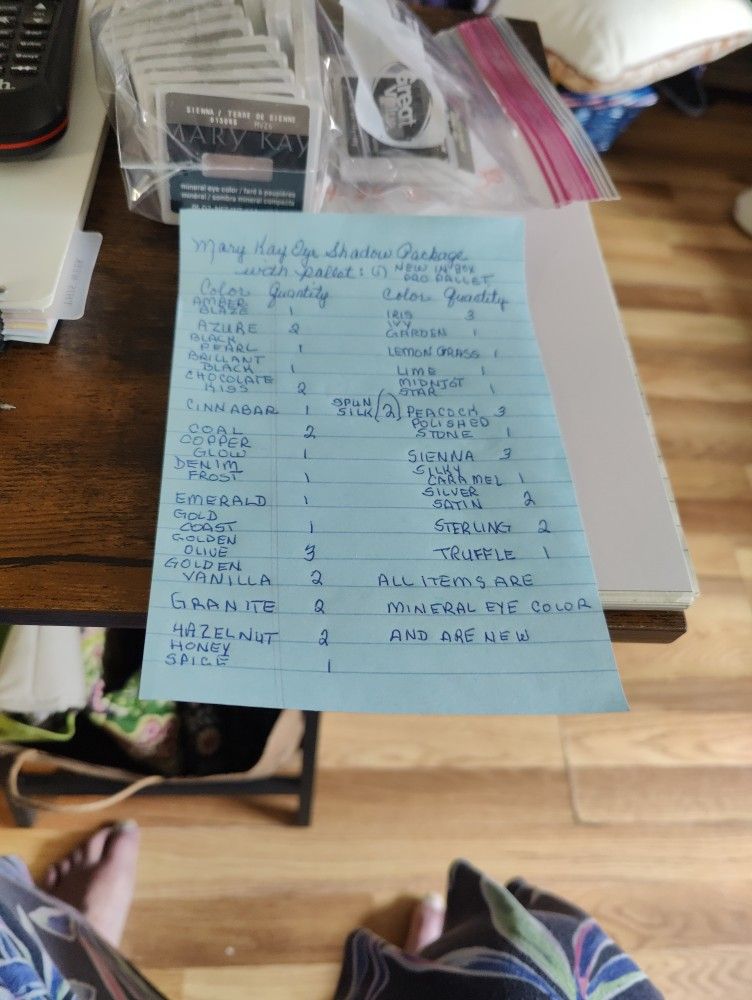 SIENNA / TERRE DE SIENNE
013098 MVZ6
MARY KAY
mineral eye color / fard à paupières
minéral / sombra mineral compacta
Great Value
Mary Kay Eye Shadow Package
with pallet: (1) NEW IN BOX
PRO PALLET
Color Quantity
AMBER
BLAZE 1
AZURE 2
BLACK
PEARL 1
BRILLANT
BLACK 1
CHOCOLATE
KISS 2
CINNABAR 1
COAL 2
COPPER
GLOW 1
DENIM
FROST 1
EMERALD 1
GOLD
COAST 1
GOLDEN
OLIVE 3
GOLDEN
VANILLA 2
GRANITE 2
HAZELNUT 2
HONEY
SPICE 1
Color Quantity
IRIS 3
IVY
GARDEN 1
LEMON GRASS 1
LIME 1
MIDNIGT
STAR 1
SPUN
SILK (2)
PEACOCK 3
POLISHED
STONE 1
SIENNA 3
SILKY
CARAMEL 1
SILVER
SATIN 2
STERLING 2
TRUFFLE 1
ALL ITEMS ARE
MINERAL EYE COLOR
AND ARE NEW